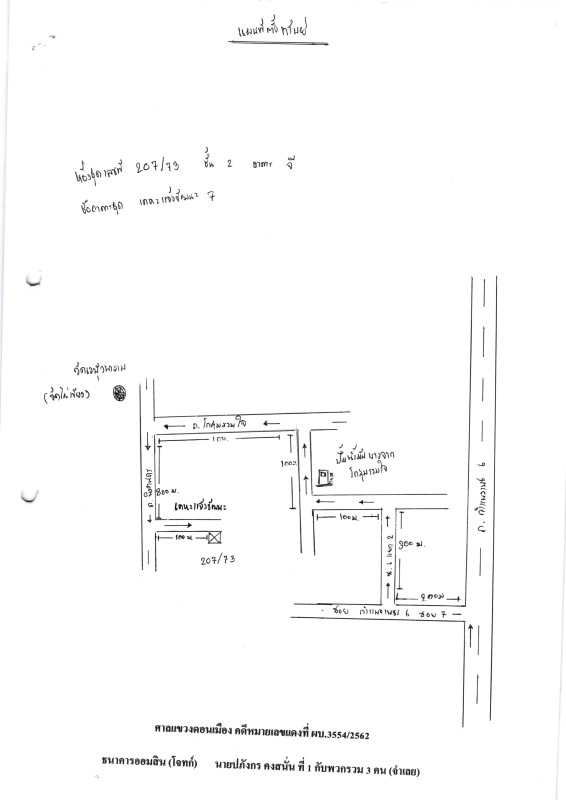 แผนที่ตั้งทรัพย์
ห้องชุดเลขที่ 207/73 ชั้น 2 อาคาร จี
ชื่ออาคารชุด เคหะแจ้งวัฒนะ 7
(วัดไผ่เขียว)
ถ. โกสุมรวมใจ
1 กม.
100 ม.
ปั๊มน้ำมัน บางจาก
โกสุมรวมใจ
800 ม.
เคหะแจ้งวัฒนะ
100 ม.
207/73
100 ม.
ซ. 6 แยก 2
300 ม.
200 ม.
ซอย กำแพงเพชร 6 ซอย 7
ถ. กำแพงเพชร 6
ศาลแขวงดอนเมือง คดีหมายเลขแดงที่ ผบ.3554/2562
ธนาคารออมสิน (โจทก์) นายปภังกร คงสนั่น ที่ 1 กับพวกรวม 3 คน (จำเลย)